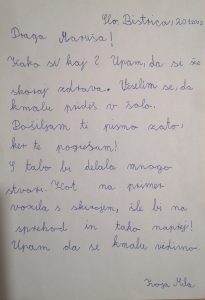 Slo. Bistrica, 20
Draga Maruša!
Kako si kaj? Upam, da si že
skoraj zdrava. Veselim se, da
kmalu prideš v šolo.
Pošiljam ti pismo zato,
ker te pogrešam!
S tabo bi delala mnogo
stvari. Kot na primer
vozila s skirojem, šle bi na
sprehod in tako naprej!
Upam da se kmalu vidimo.
Tvoja